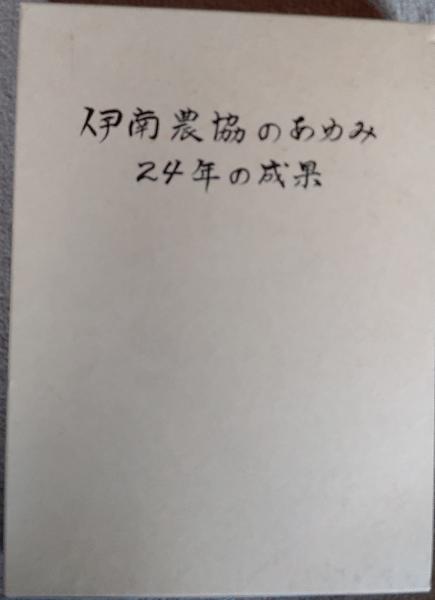 伊南農協のあゆみ
24年の成果